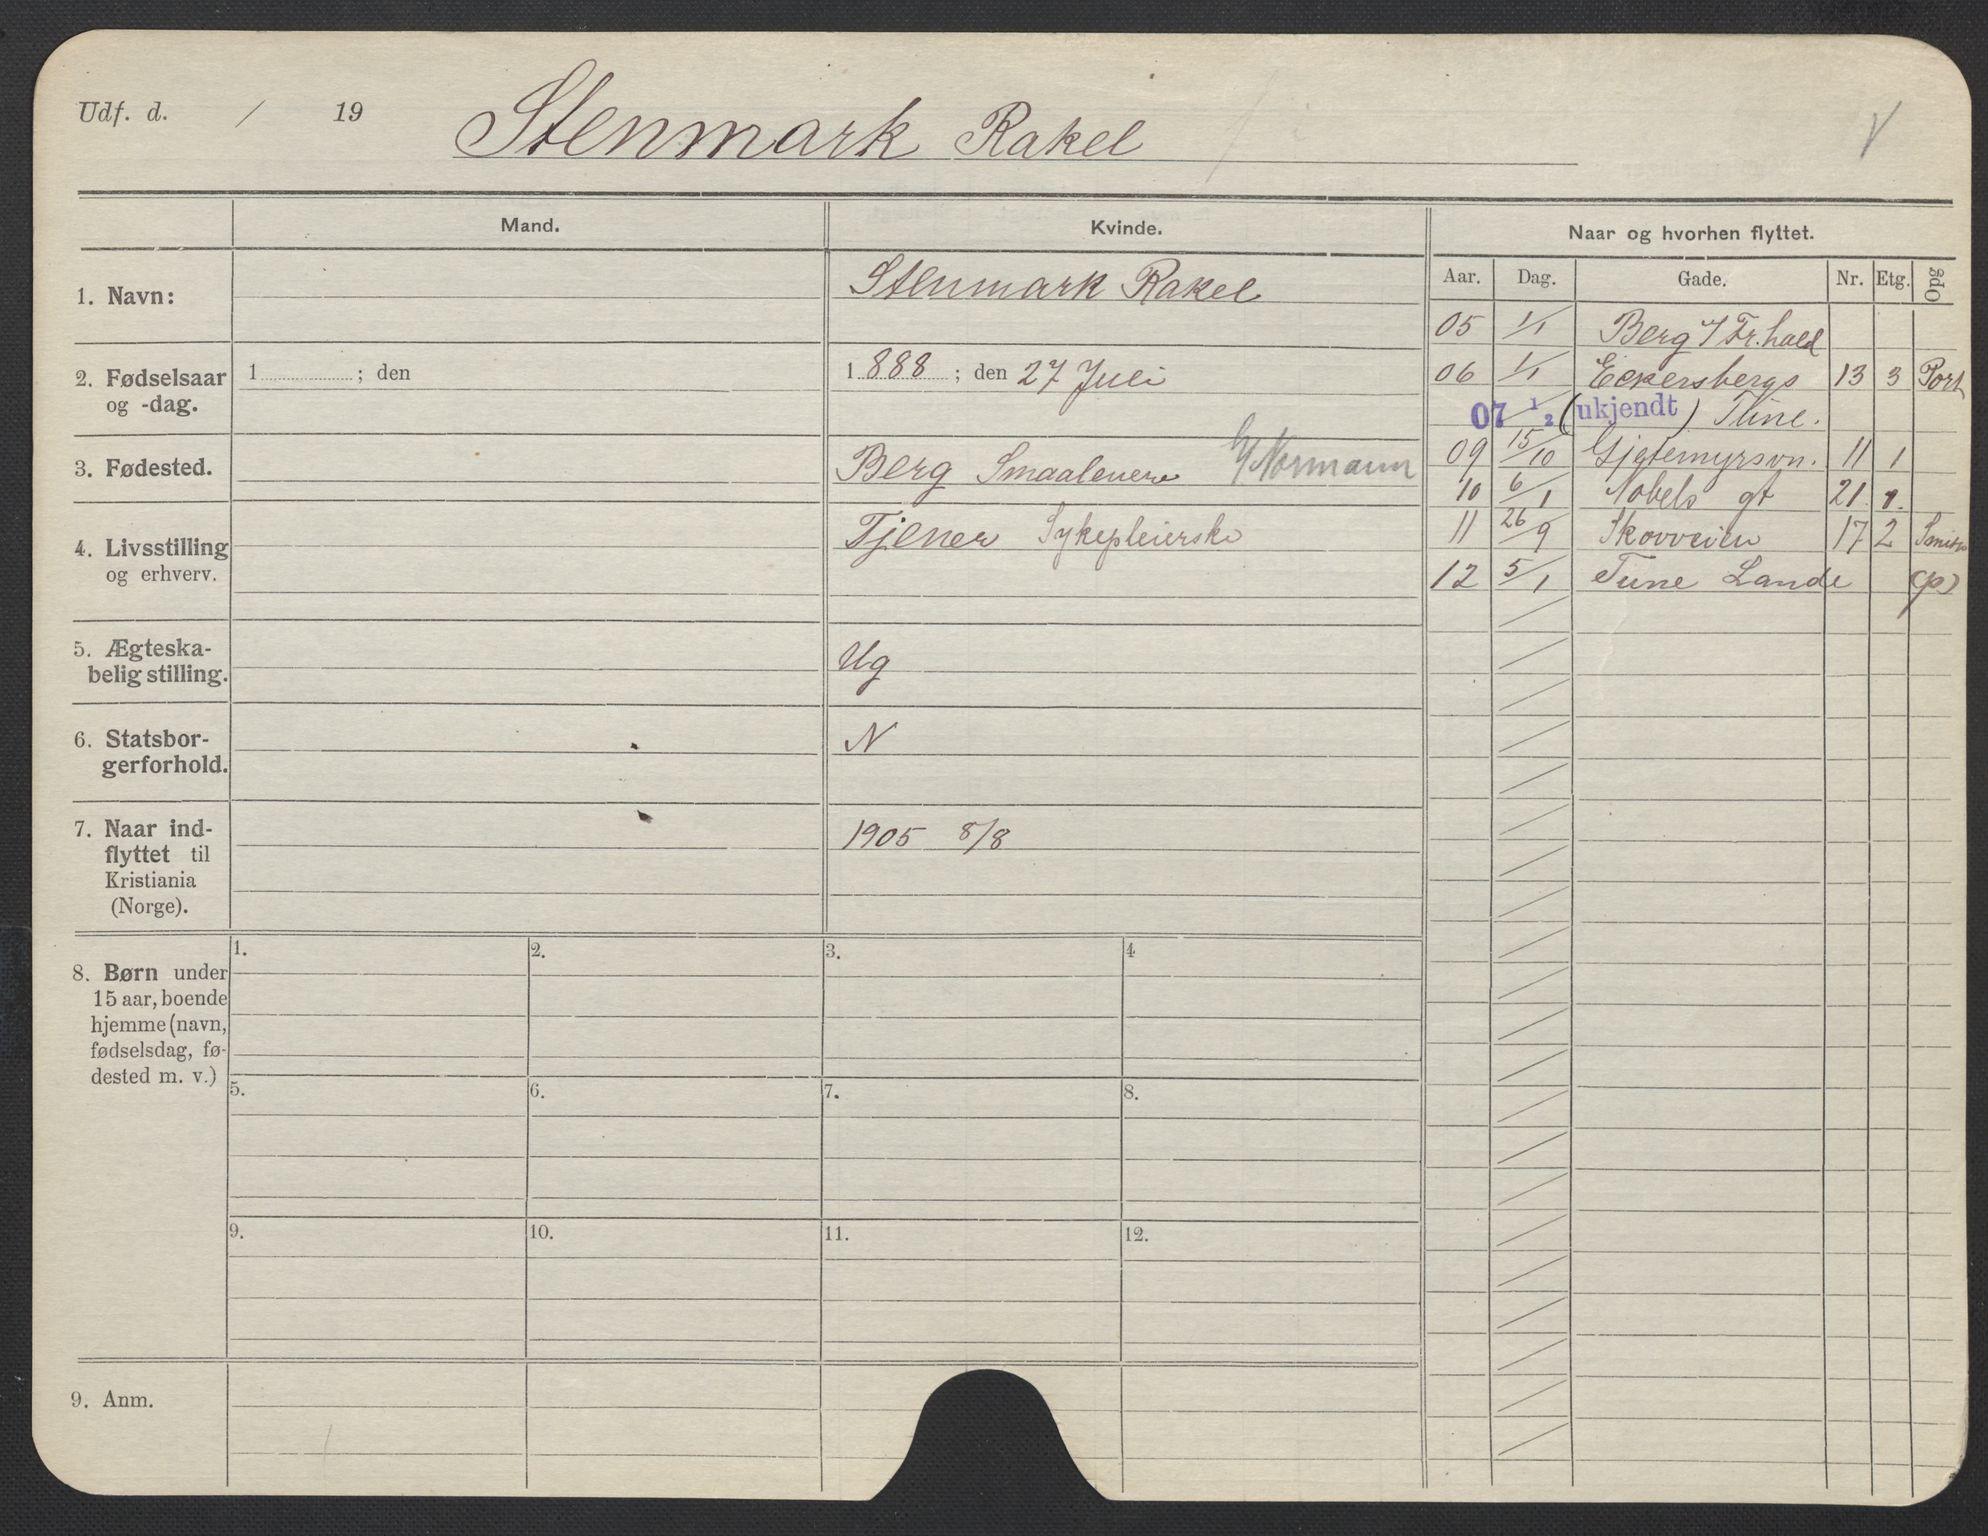 Udf. d. / 19 Stenmark Rakel
Mand. Kvinde. Naar og hvorhen flyttet.
Aar. Dag. Gade. Nr. Etg. Opg
1. Navn: Stenmark Rakel
2. Fødselsaar
og -dag.
1 ; den
1888 ; den 27 Juli
3. Fødested. Berg Smaalenene G/Normann
4. Livsstilling
og erhverv.
Tjener Sykepleierske
5. Ægteska-
belig stilling.
Ug
6. Statsbor-
gerforhold.
N
7. Naar ind-
flyttet til
Kristiania
(Norge).
1905 8/8
05 1/1 Berg / Fr.hald
06 1/1 Eckersbergs 13 3 Port
07 1/2 (ukjendt) Tune.
09 15/10 Gjetemyrsvn. 11 1
10 6/1 Nobels gt 21. 1.
11 26/9 Skovveien 17 2
12 5/1 Tune Lande (p)
8. Børn under
15 aar, boende
hjemme (navn,
fødselsdag, fø-
dested m. v.)
1. 2. 3. 4
5. 6. 7. 8.
9. 10. 11. 12.
9. Anm.